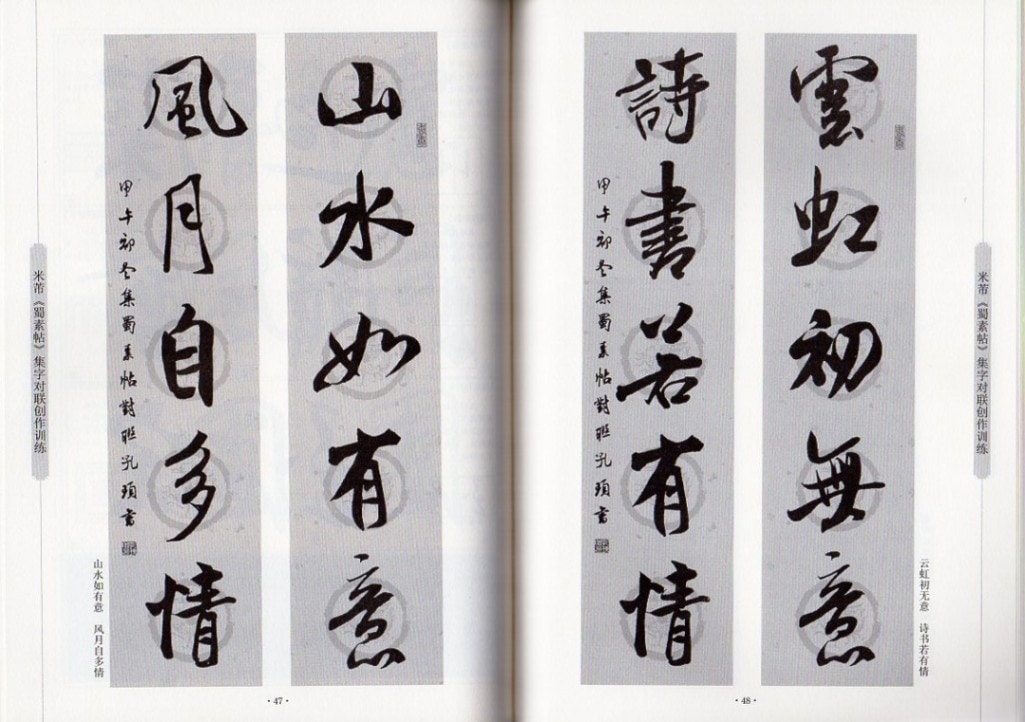 雲虹初無意
詩書若有情
甲午初冬集蜀素帖對聯孔頊書
云虹初无意 诗书若有情
米芾《蜀素帖》集字对联创作训练
·48·
山水如有意
風月自多情
甲午初冬集蜀素帖對聯孔頊書
山水如有意 风月自多情
米芾《蜀素帖》集字对联创作训练
·47·